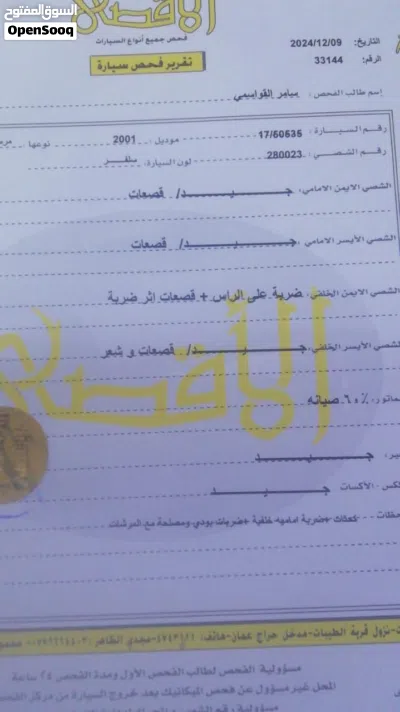 السوق المفتوح
OpenSooq
الأقصى
فحص جميع أنواع السيارات
تقرير فحص سيارة
التاريخ: 2024/12/09
الرقم: 33144
إسم طالب الفحص: سامر القواسمي
رقم السيارة: 17/60535 موديل: 2001 نوعها
رقم الشصي: 280023 لون السيارة:
الشصي الايمن الامامي: جـــيـــد/ قصعات
الشصي الأيسر الامامي: جـــيـــد/ قصعات
الشصي الايمن الخلفي: ضربة على الراس + قصعات اثر ضربة
الشصي الأيسر الخلفي: جـــيـــد/ قصعات و شعر
الأقصى
٦٠٪ صيانه
جـــيـــد
جـــيـــد
+ضربة اماميه خلفية +ضربات بودي ومصلحة مع المرشات
نزول قرية الطيبات-مدخل حراج عمان-هاتف:
مسؤولية الفحص لطالب الفحص الأول ومدة الفحص ٢٤ ساعة
المحل غير مسؤول عن فحص الميكانيك بعد خروج السيارة من مركز الفحص